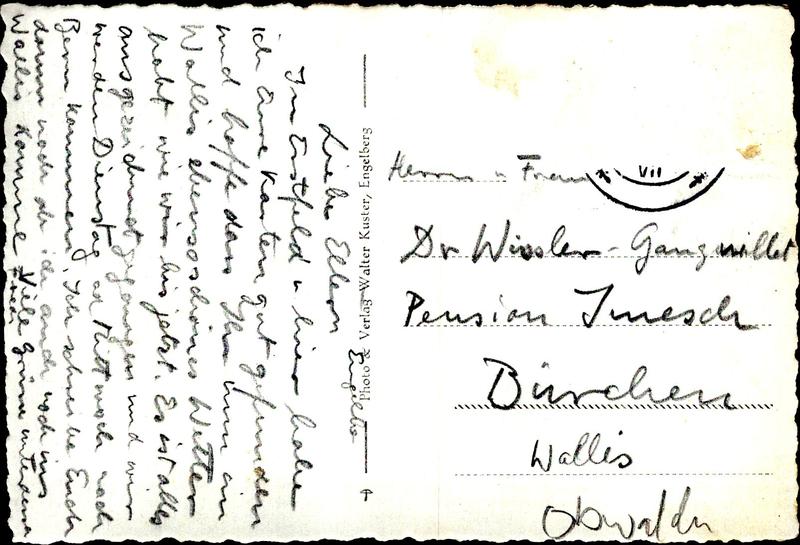 Liebe Eltern
In Erstfeld u hier habe
ich Eure Karten gut gefunden
und hoffe dass Ihr nun im
Wallis ebensoschönes Wetter
habt wie wir bis jetzt. Es ist alles
ausgezeichnet gegangen und wir
werden Dienstag od Mittwoch nach
Bern kommen. Ich schreibe Euch
dann noch ob ich auch noch ins
Wallis komme Viele Grüsse
Photo & Verlag Walter Kuster, Engelberg
VII
Herrn u Frau
Dr Wissler-Ganguillet
Pension Imesch
Bürchen
Wallis
Obwalden